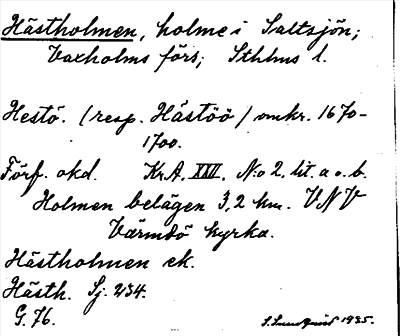 Hästholmen, holme i Saltsjön;
Vaxholms förs; Sthlms l.
Hestö. (resp. Hästöö) omkr. 1670-
1700.
Förf. okd. Kr.A. XXV. No 2. lit. a o. b.
Holmen belägen 3,2 km. VNV
Värmdö kyrka.
Hästholmen ek.
Hästh. Sj. 234.
G. 76.
1935.